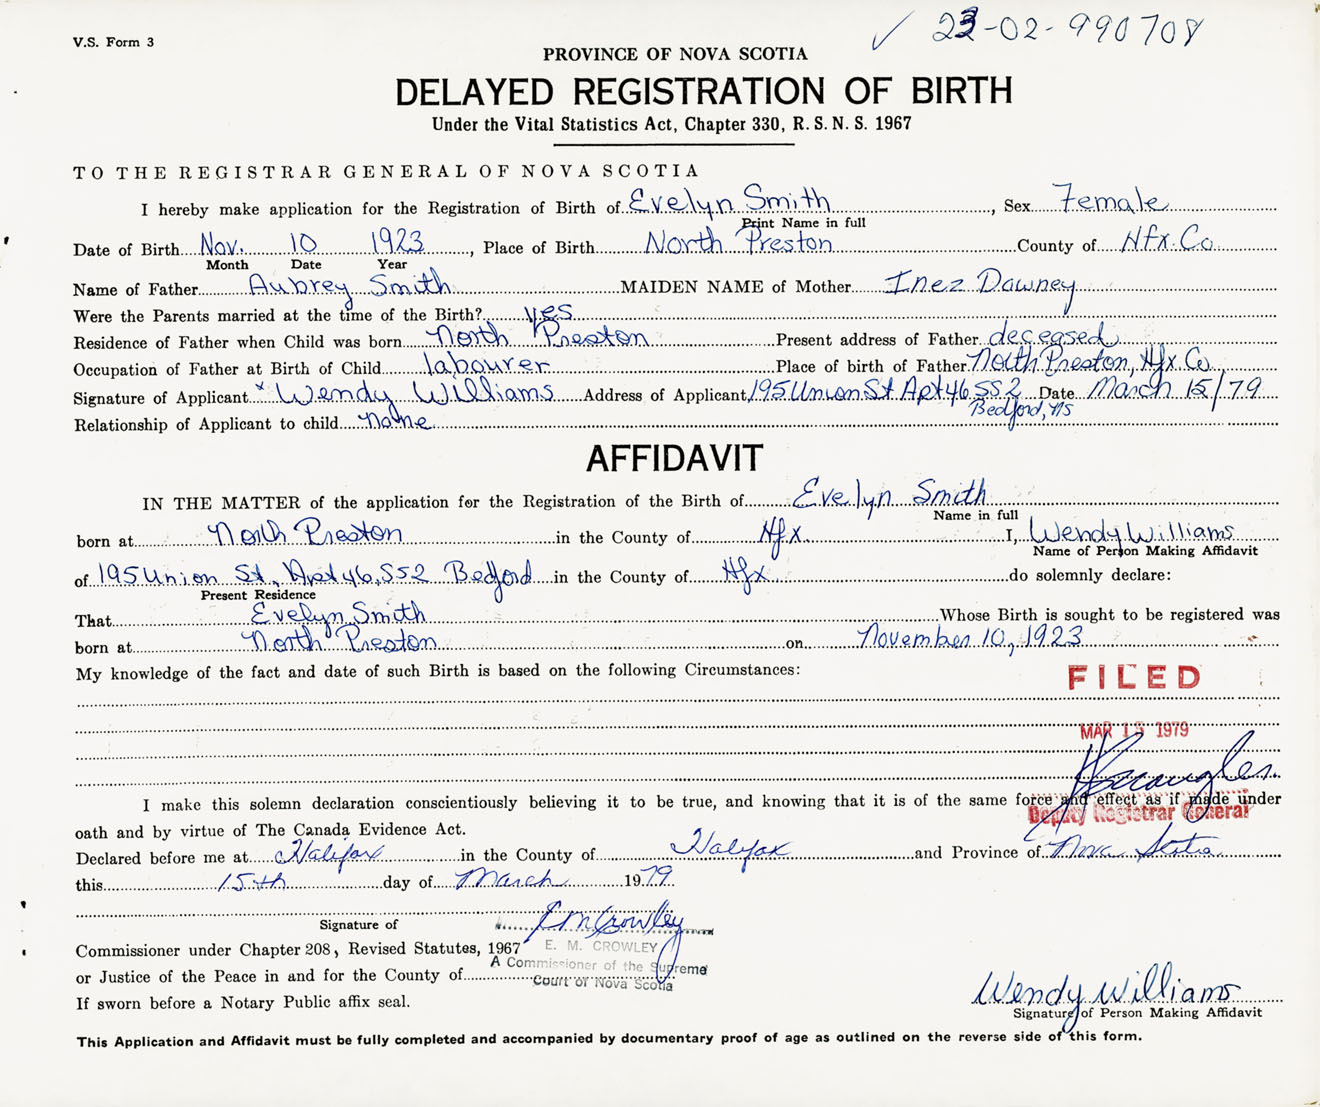 V.S. Form 3
✓ 23-02-990708
PROVINCE OF NOVA SCOTIA
DELAYED REGISTRATION OF BIRTH
Under the Vital Statistics Act, Chapter 330, R. S. N. S. 1967
TO THE REGISTRAR GENERAL OF NOVA SCOTIA
I hereby make application for the Registration of Birth of Evelyn Smith, Sex Female
Print Name in full
Date of Birth Nov. 10 1923, Place of Birth North Preston County of Hfx. Co.
Month Date Year
Name of Father Aubrey Smith MAIDEN NAME of Mother Inez Downey
Were the Parents married at the time of the Birth? yes
Residence of Father when Child was born North Preston Present address of Father deceased
Occupation of Father at Birth of Child labourer Place of birth of Father North Preston, Hfx. Co.
Signature of Applicant x Wendy Williams Address of Applicant 195 Union St. Apt 46, SS2 Date March 15/79
Bedford, NS
Relationship of Applicant to child none
AFFIDAVIT
IN THE MATTER of the application for the Registration of the Birth of Evelyn Smith
Name in full
born at North Preston in the County of Hfx I, Wendy Williams
Name of Person Making Affidavit
of 195 Union St., Apt 46, SS2 Bedford in the County of Hfx do solemnly declare:
Present Residence
That Evelyn Smith Whose Birth is sought to be registered was
born at North Preston on November 10, 1923
My knowledge of the fact and date of such Birth is based on the following Circumstances:
FILED
MAR 15 1979
I make this solemn declaration conscientiously believing it to be true, and knowing that it is of the same force and effect as if made under
Deputy Registrar General
oath and by virtue of The Canada Evidence Act.
Declared before me at Halifax in the County of Halifax and Province of Nova Scotia
this 15th day of March 1979
Signature of E M Crowley
Commissioner under Chapter 208, Revised Statutes, 1967
E. M. CROWLEY
A Commissioner of the Supreme
Court of Nova Scotia
or Justice of the Peace in and for the County of
Wendy Williams
If sworn before a Notary Public affix seal.
Signature of Person Making Affidavit
This Application and Affidavit must be fully completed and accompanied by documentary proof of age as outlined on the reverse side of this form.